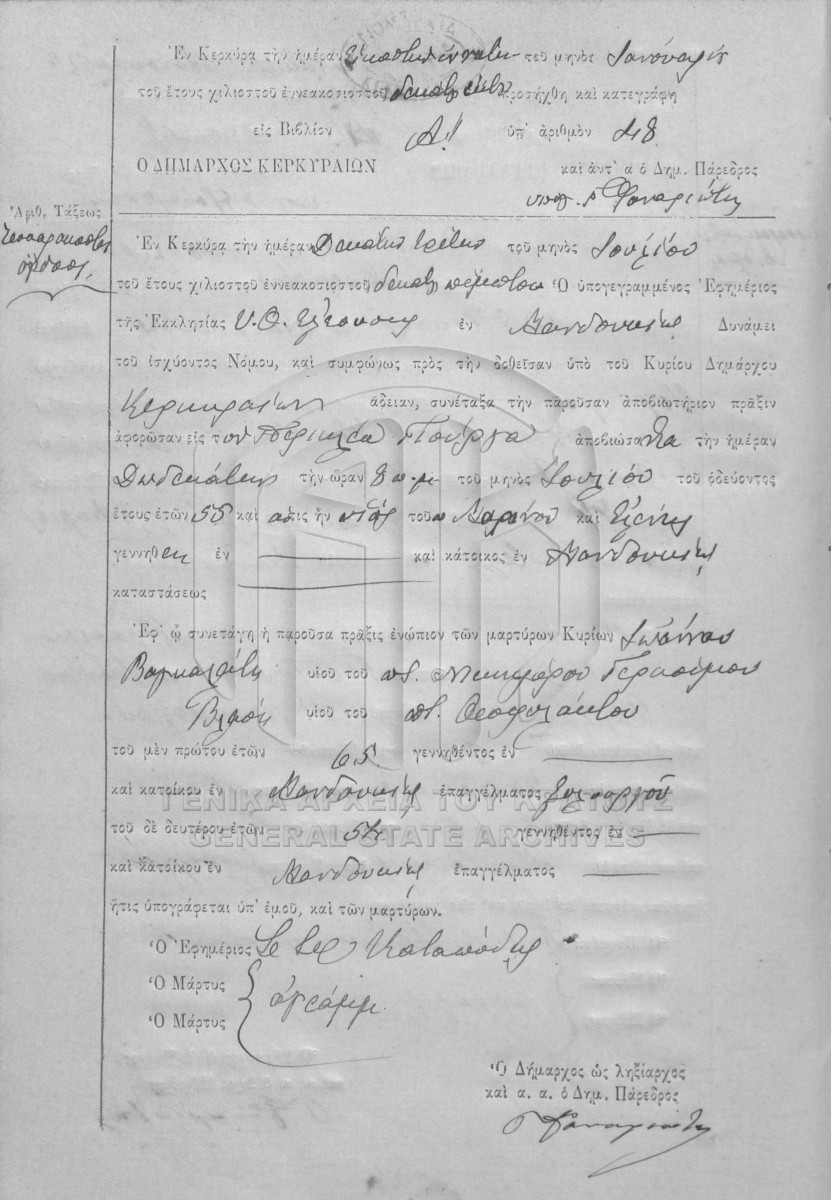 Ἐν Κερκύρᾳ τὴν ἡμέραν Εἰκοστὴν ἐννάτην τοῦ μηνὸς Ἰανουαρίου
τοῦ ἔτους χιλιοστοῦ ἐννεακοσιοστοῦ δεκάτου ἕκτου προσήχθη καὶ κατεγράφη
εἰς Βιβλίον Α! ὑπ' ἀριθμὸν 48
Ο ΔΗΜΑΡΧΟΣ ΚΕΡΚΥΡΑΙΩΝ
καὶ ἀντ' α ὁ Δημ. Πάρεδρος
Φαναριώτης
Ἀριθ. Τάξεως
Τεσσαρακοστὸς
ὄγδοος
Ἐν Κερκύρᾳ τὴν ἡμέραν Δεκάτην τρίτην τοῦ μηνὸς Ἰουλίου
τοῦ ἔτους χιλιοστοῦ ἐννεακοσιοστοῦ δεκάτου πέμπτου Ὁ ὑπογεγραμμένος Ἐφημέριος
τῆς Ἐκκλησίας Υ. Θ. Ἐλεούσης ἐν Μανδουκίῳ Δυνάμει
τοῦ ἰσχύοντος Νόμου, καὶ συμφώνως πρὸς τὴν δοθεῖσαν ὑπὸ τοῦ Κυρίου Δημάρχου
Κερκυραίων ἄδειαν, συνέταξα τὴν παροῦσαν ἀποβιωτήριον πρᾶξιν
ἀφορῶσαν εἰς τὸν Περικλέα Γιούργα ἀποβιώσαντα τὴν ἡμέραν
Δωδεκάτην τὴν ὥραν 8 π.μ τοῦ μηνὸς Ἰουλίου τοῦ ὁδεύοντος
ἔτους ἐτῶν 55 καὶ ὅστις ἦν υἱὸς τοῦ Μαρίνου καὶ Ἑλένης
γεννηθεὶς ἐν καὶ κάτοικος ἐν Μανδουκίῳ
καταστάσεως
Ἐφ' ᾧ συνετάγη ἡ παροῦσα πρᾶξις ἐνώπιον τῶν μαρτύρων Κυρίων Ἰωάννου
υἱοῦ τοῦ ποτ. Νικηφόρου Γερασίμου
Βλάση υἱοῦ τοῦ ποτ. Θεοφυλάκτου
τοῦ μὲν πρώτου ἐτῶν 65 γεννηθέντος ἐν
καὶ κατοίκου ἐν Μανδουκίῳ ἐπαγγέλματος ξυλουργοῦ
τοῦ δὲ δευτέρου ἐτῶν 54 γεννηθέντος ἐν
καὶ κατοίκου ἐν Μανδουκίῳ ἐπαγγέλματος
ἥτις ὑπογράφεται ὑπ' ἐμοῦ, καὶ τῶν μαρτύρων.
Ὁ Ἐφημέριος Καταπόδης
Ὁ Μάρτυς
Ὁ Μάρτυς
ἀγράμμ.
Ὁ Δήμαρχος ὡς ληξίαρχος
καὶ α. α. ὁ Δημ. Πάρεδρος
Φαναριώτης
ΓΕΝΙΚΑ ΑΡΧΕΙΑ ΤΟΥ ΚΡΑΤΟΥΣ
GENERAL STATE ARCHIVES